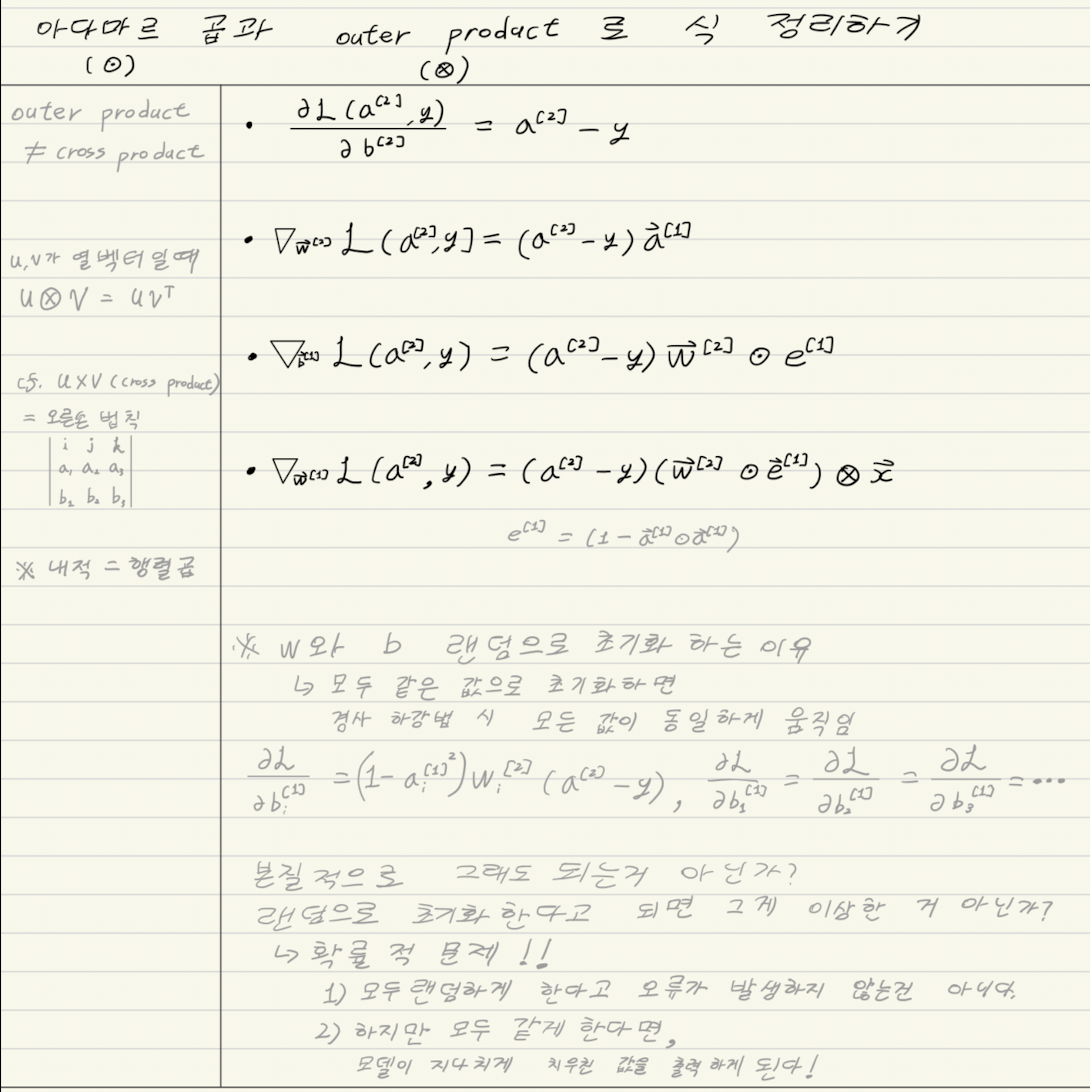 아다마르 곱과 outer product 로 식 정리하기
(⊙) (⊗)
outer product
≠ cross product
u,v가 열벡터일때
u⊗v = uvᵀ
cf. u×v (cross product)
= 오른손 법칙
| i j k |
| a₁ a₂ a₃ |
| b₁ b₂ b₃ |
※ 내적 = 행렬곱
• ∂L(a^[2], y) / ∂b^[2] = a^[2] - y
• ∇_w⃗^[2] L(a^[2], y] = (a^[2] - y) a⃗^[1]
• ∇_b⃗^[1] L(a^[2], y) = (a^[2] - y) w⃗^[2] ⊙ e^[1]
• ∇_w⃗^[1] L(a^[2], y) = (a^[2] - y)(w⃗^[2] ⊙ e⃗^[1]) ⊗ x⃗
e^[1] = (1 - a⃗^[1] ⊙ a⃗^[1])
※ w와 b 랜덤으로 초기화 하는 이유
↳ 모두 같은 값으로 초기화하면
경사 하강법 시 모든 값이 동일하게 움직임
∂L/∂b_i^[1] = (1 - a_i^[1]²) w_i^[2] (a^[2] - y), ∂L/∂b₁^[1] = ∂L/∂b₂^[1] = ∂L/∂b₃^[1] = ...
본질적으로 그래도 되는거 아닌가?
랜덤으로 초기화 한다고 되면 그게 이상한 거 아닌가?
↳ 확률적 문제!!
1) 모두 랜덤하게 한다고 오류가 발생하지 않는건 아니다.
2) 하지만 모두 같게 한다면,
모델이 지나치게 치우친 값을 출력하게 된다!